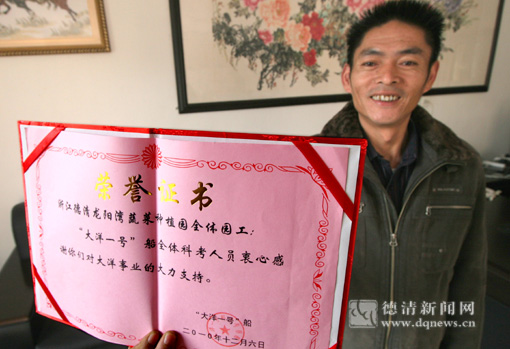 荣誉证书
浙江德清龙阳湾蔬菜种植园全体园工：
“大洋一号”船全体科考人员衷心感
谢你们对大洋事业的大力支持。
“大洋一号”船
二〇一〇年十二月六日
德清新闻网
www.dqnews.cn